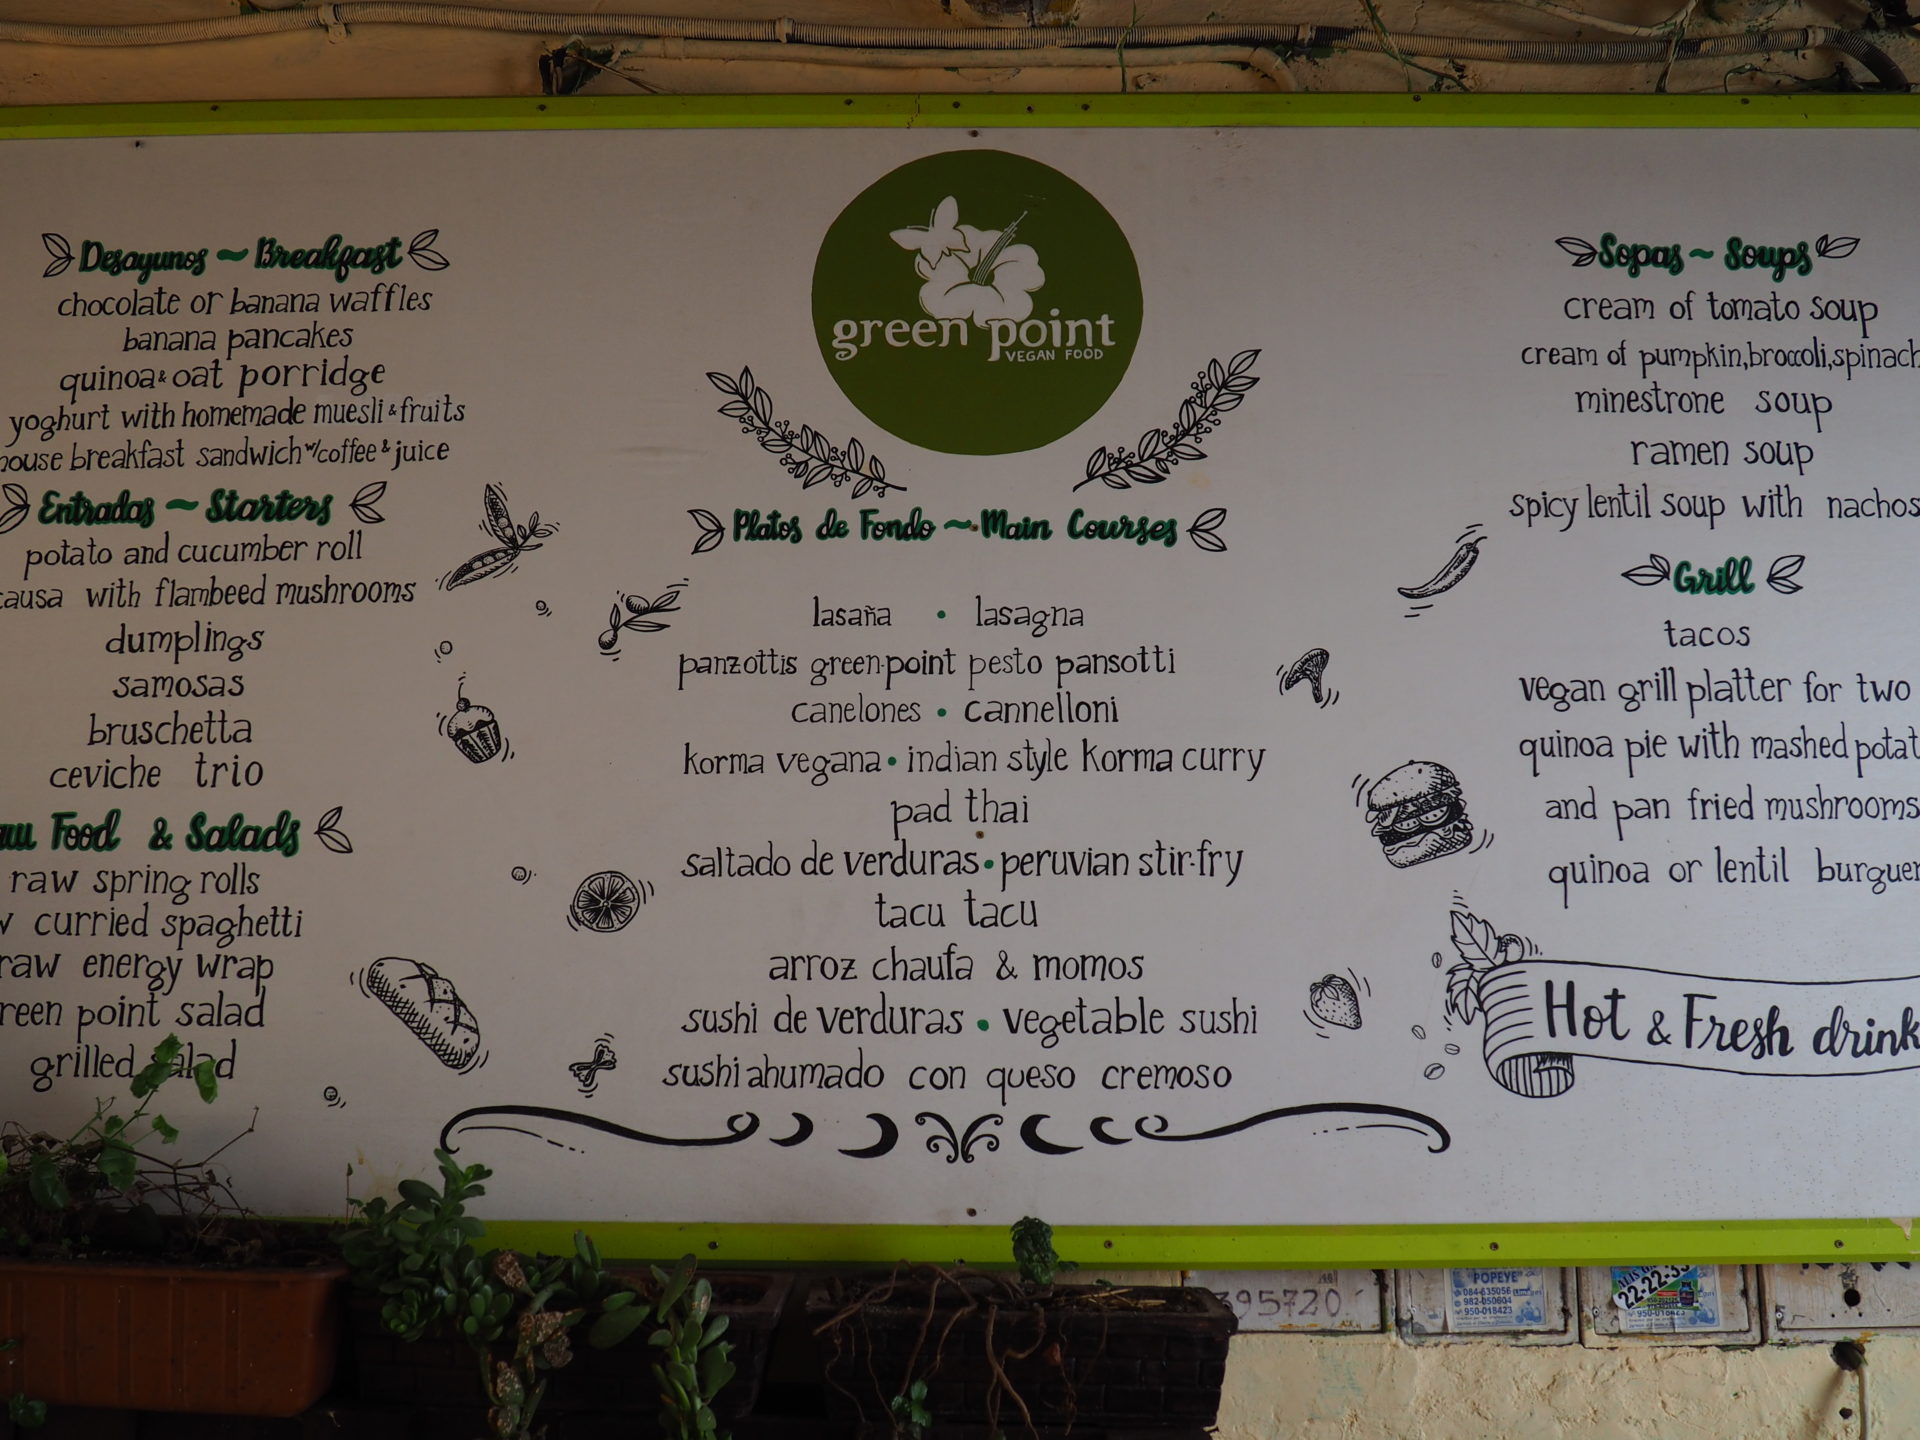 green point
VEGAN FOOD
Desayunos ~ Breakfast
chocolate or banana waffles
banana pancakes
quinoa & oat porridge
yoghurt with homemade muesli & fruits
house breakfast sandwich w/coffee & juice
Entradas ~ Starters
potato and cucumber roll
causa with flambeed mushrooms
dumplings
samosas
bruschetta
ceviche trio
Food & Salads
raw spring rolls
curried spaghetti
raw energy wrap
green point salad
grilled salad
Platos de Fondo ~ Main Courses
lasaña • lasagna
panzottis green·point pesto pansotti
canelones • cannelloni
korma vegana • indian style korma curry
pad thai
saltado de verduras • peruvian stir-fry
tacu tacu
arroz chaufa & momos
sushi de verduras • vegetable sushi
sushi ahumado con queso cremoso
Sopas ~ Soups
cream of tomato soup
cream of pumpkin, broccoli, spinach
minestrone soup
ramen soup
spicy lentil soup with nachos
Grill
tacos
vegan grill platter for two
quinoa pie with mashed potat
and pan fried mushrooms
quinoa or lentil burguer
Hot & Fresh drink
395720
POPEYE
084-635056
982-050604
950-018423
22-22-33
950-018423